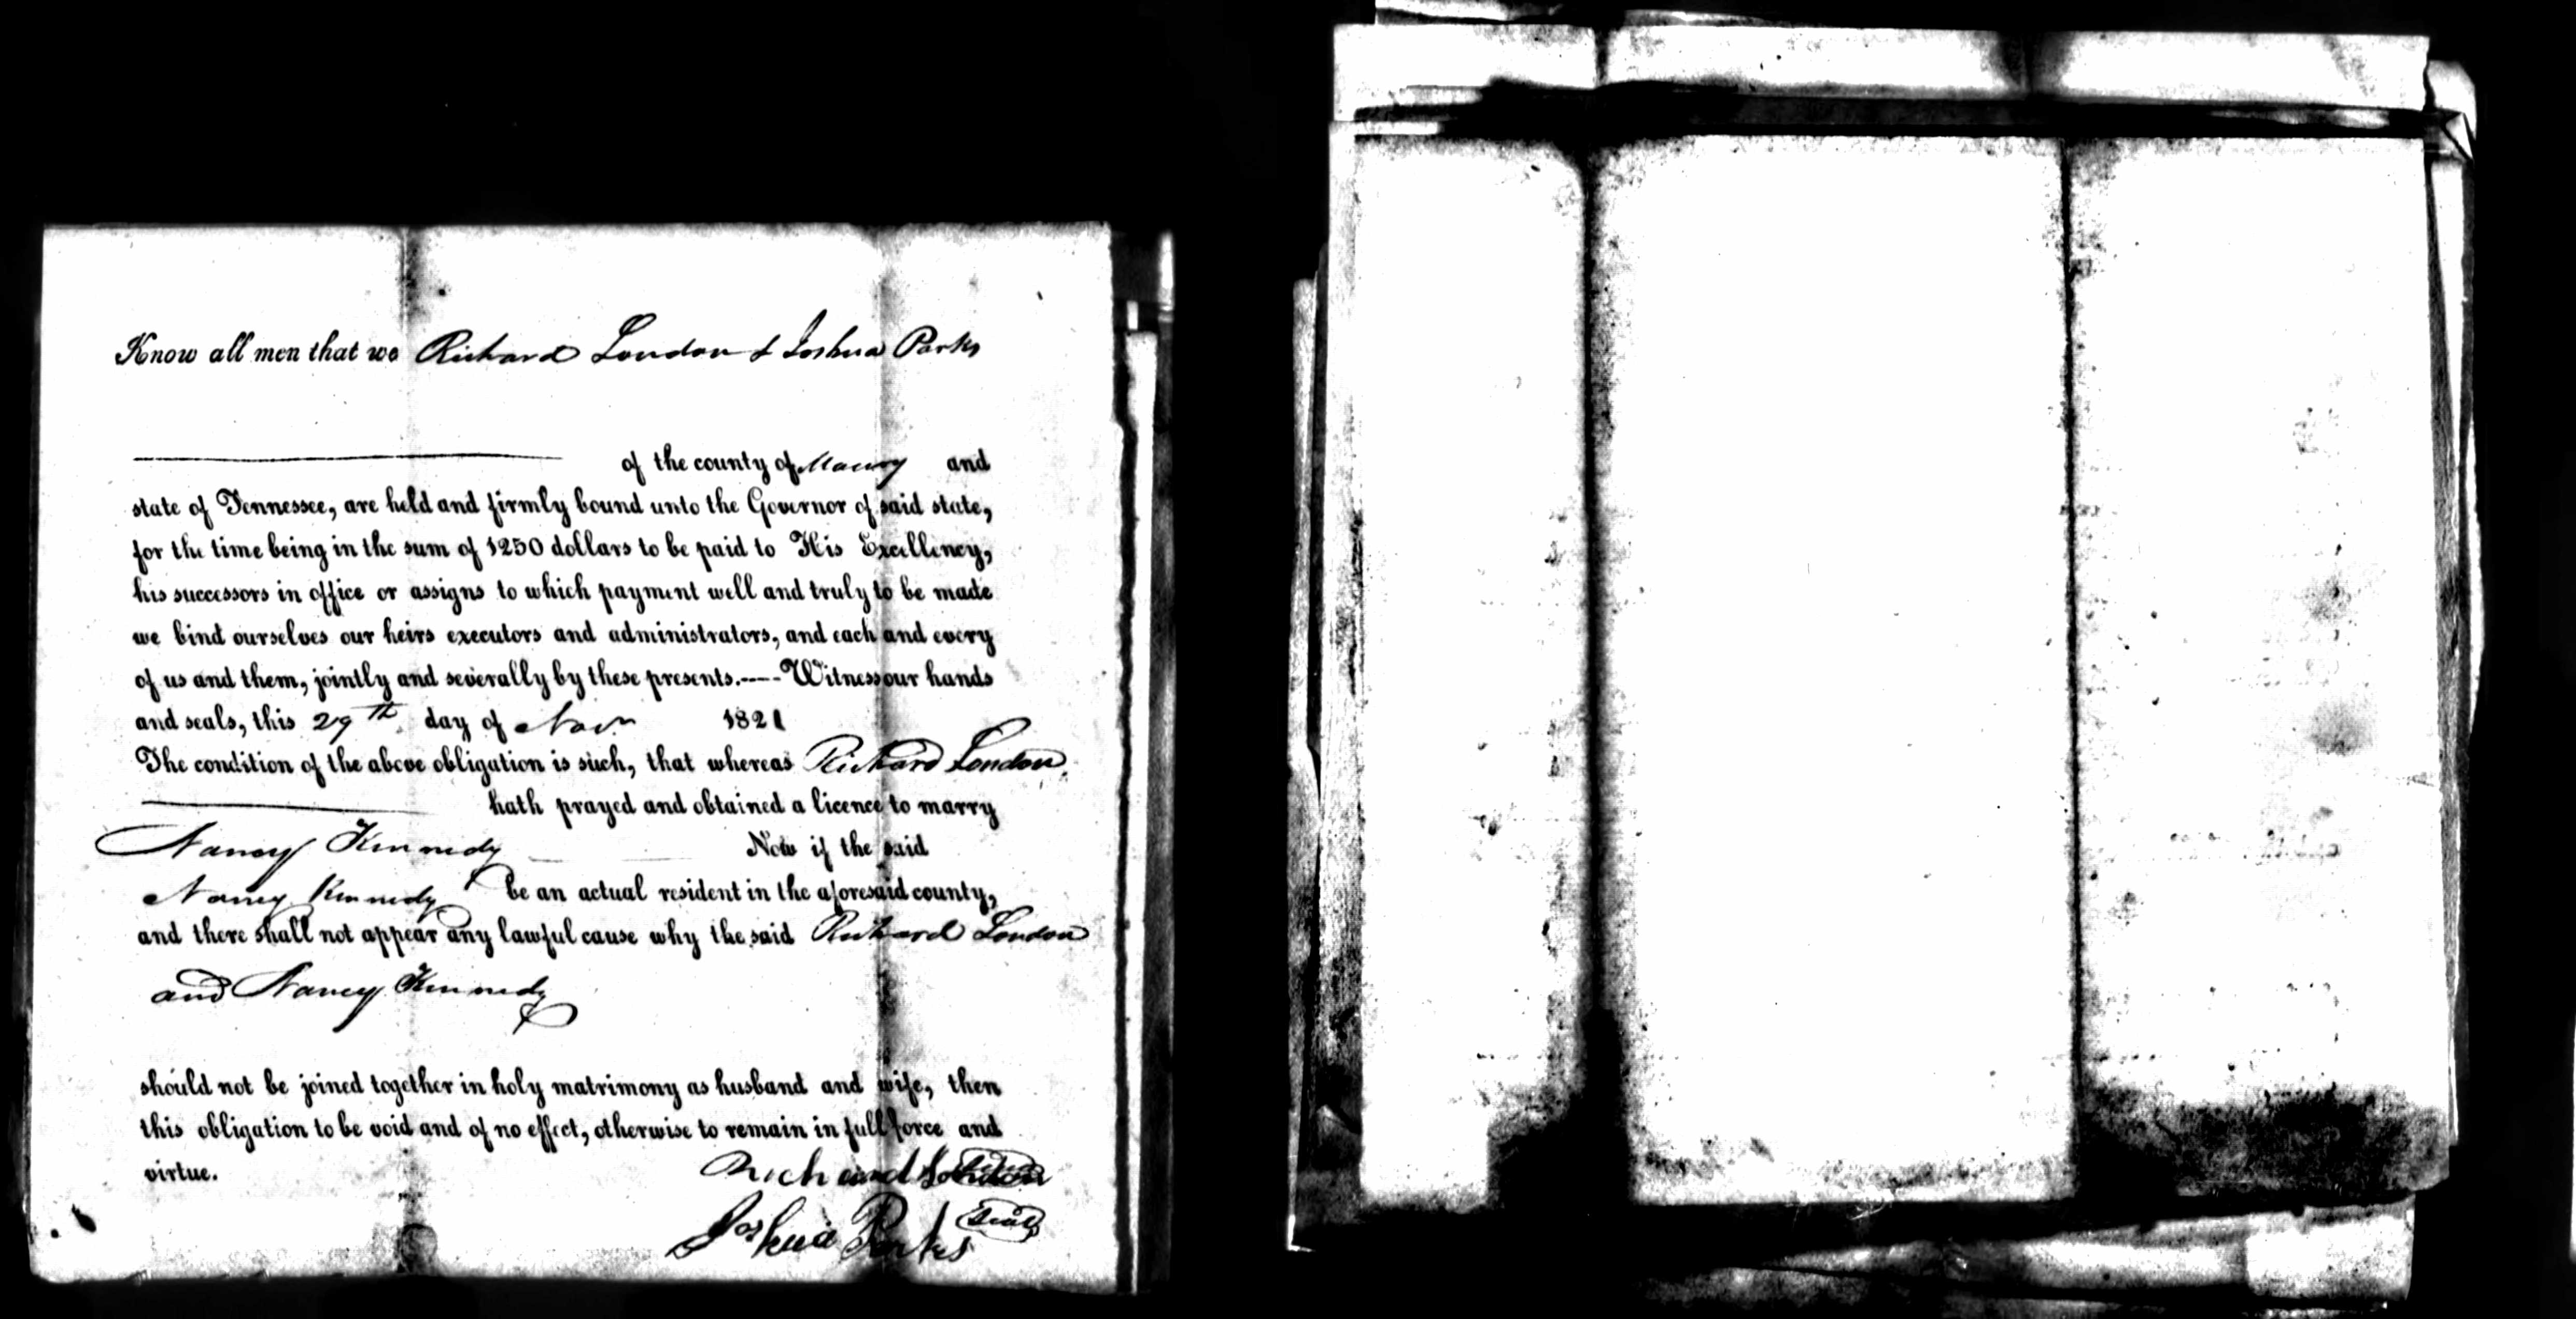 Know all men that we Richard London & Joshua Parks
of the county of Maury and
state of Tennessee, are held and firmly bound unto the Governor of said state,
for the time being in the sum of 1250 dollars to be paid to His Excellency,
his successors in office or assigns to which payment well and truly to be made
we bind ourselves our heirs executors and administrators, and each and every
of us and them, jointly and severally by these presents.----Witness our hands
and seals, this 29th day of Novr 1821
The condition of the above obligation is such, that whereas Richard London
hath prayed and obtained a licence to marry
Nancy Kennedy Now if the said
Nancy Kennedy be an actual resident in the aforesaid county,
and there shall not appear any lawful cause why the said Richard London
and Nancy Kennedy
should not be joined together in holy matrimony as husband and wife, then
this obligation to be void and of no effect, otherwise to remain in full force and
virtue. Richard London
Joshua Parks Seal